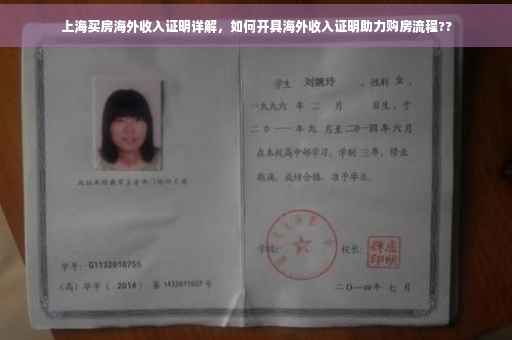 上海买房海外收入证明详解，如何开具海外收入证明助力购房流程??
学生 刘婉玲 ，性别 女 ，
一九九六 年 二 月 日生，于
二〇一一年九 月至二〇一四年六月
在本校高中部学习，学制 三年，修业
期满，成绩合格，准予毕业。
学校：
校长：
学号： G1132010755
（高）毕字（ 2014 ）第 1432011007 号
二〇一四年 七 月